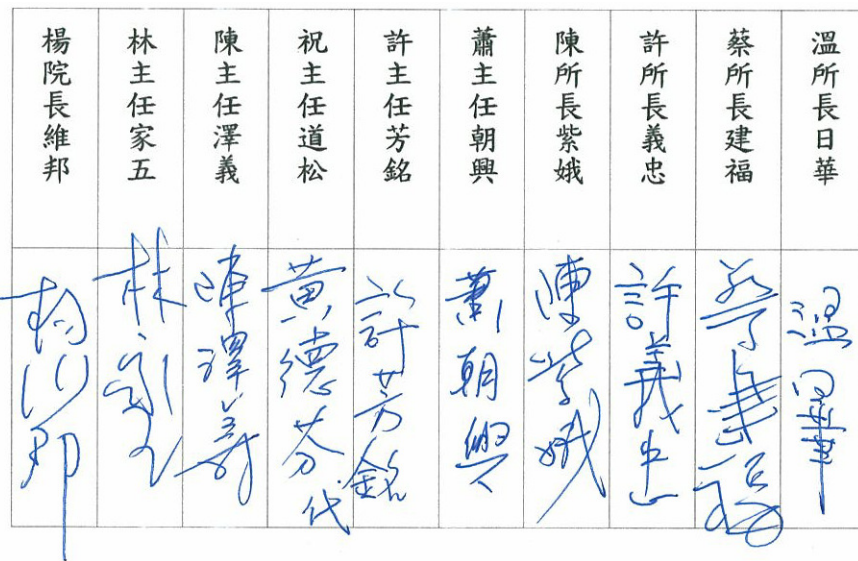 溫所長日華
蔡所長建福
許所長義忠
陳所長紫娥
蕭主任朝興
許主任芳銘
祝主任道松
陳主任澤義
林主任家五
楊院長維邦
溫日華
蔡建福
許義忠
陳紫娥
蕭朝興
許芳銘
黃德芬代
陳澤義
林家五
楊維邦